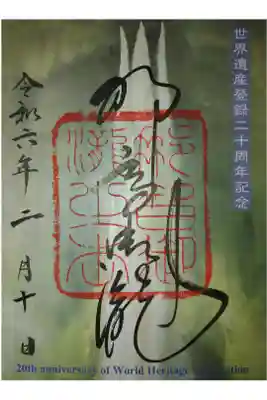 世界遺産登録二十周年記念
那智御瀧
令和六年 二月十日
20th anniversary of World Heritage